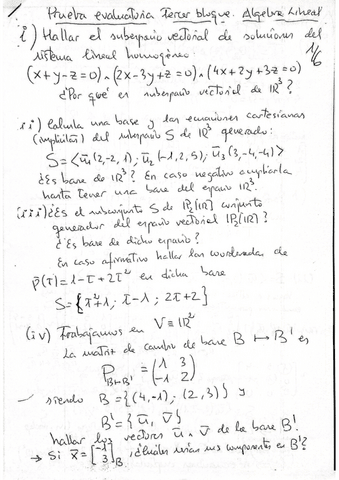 Prueba evaluatoria Tercer bloque. Algebra Lineal
1/6
i) Hallar el subespacio vectorial de soluciones del
sistema lineal homogéneo:
(x+y-z=0) ∧ (2x-3y+z=0) ∧ (4x+2y+3z=0)
¿Por qué es subespacio vectorial de ℝ³?
ii) Calcula una base y las ecuaciones cartesianas
(implícitas) del subespacio S de ℝ³ generado:
S = <ū₁(2,-2,1); ū₂(-1,2,5); ū₃(3,-4,-4)>
¿Es base de ℝ³? En caso negativo ampliarla
hasta tener una base del espacio ℝ³.
iii) ¿Es el subconjunto S de P₂(ℝ) conjunto
generador del espacio vectorial P₂(ℝ)?
¿Es base de dicho espacio?
En caso afirmativo hallar las coordenadas de
p̄(t) = 1-t+2t² en dicha base
S = {t²+1; t-1; 2t+2}
(iv) Trabajamos en V ≡ ℝ²
La matriz de cambio de base B ↦ B' es
P B↦B' = (1 3
-1 2)
siendo B = {(4,-1); (2,3)} y
B' = {ū, v̄}
hallar los vectores ū, v̄ de la base B'.
→ Si x̄ = [-1 3]B, ¿cuáles serían sus componentes en B'?